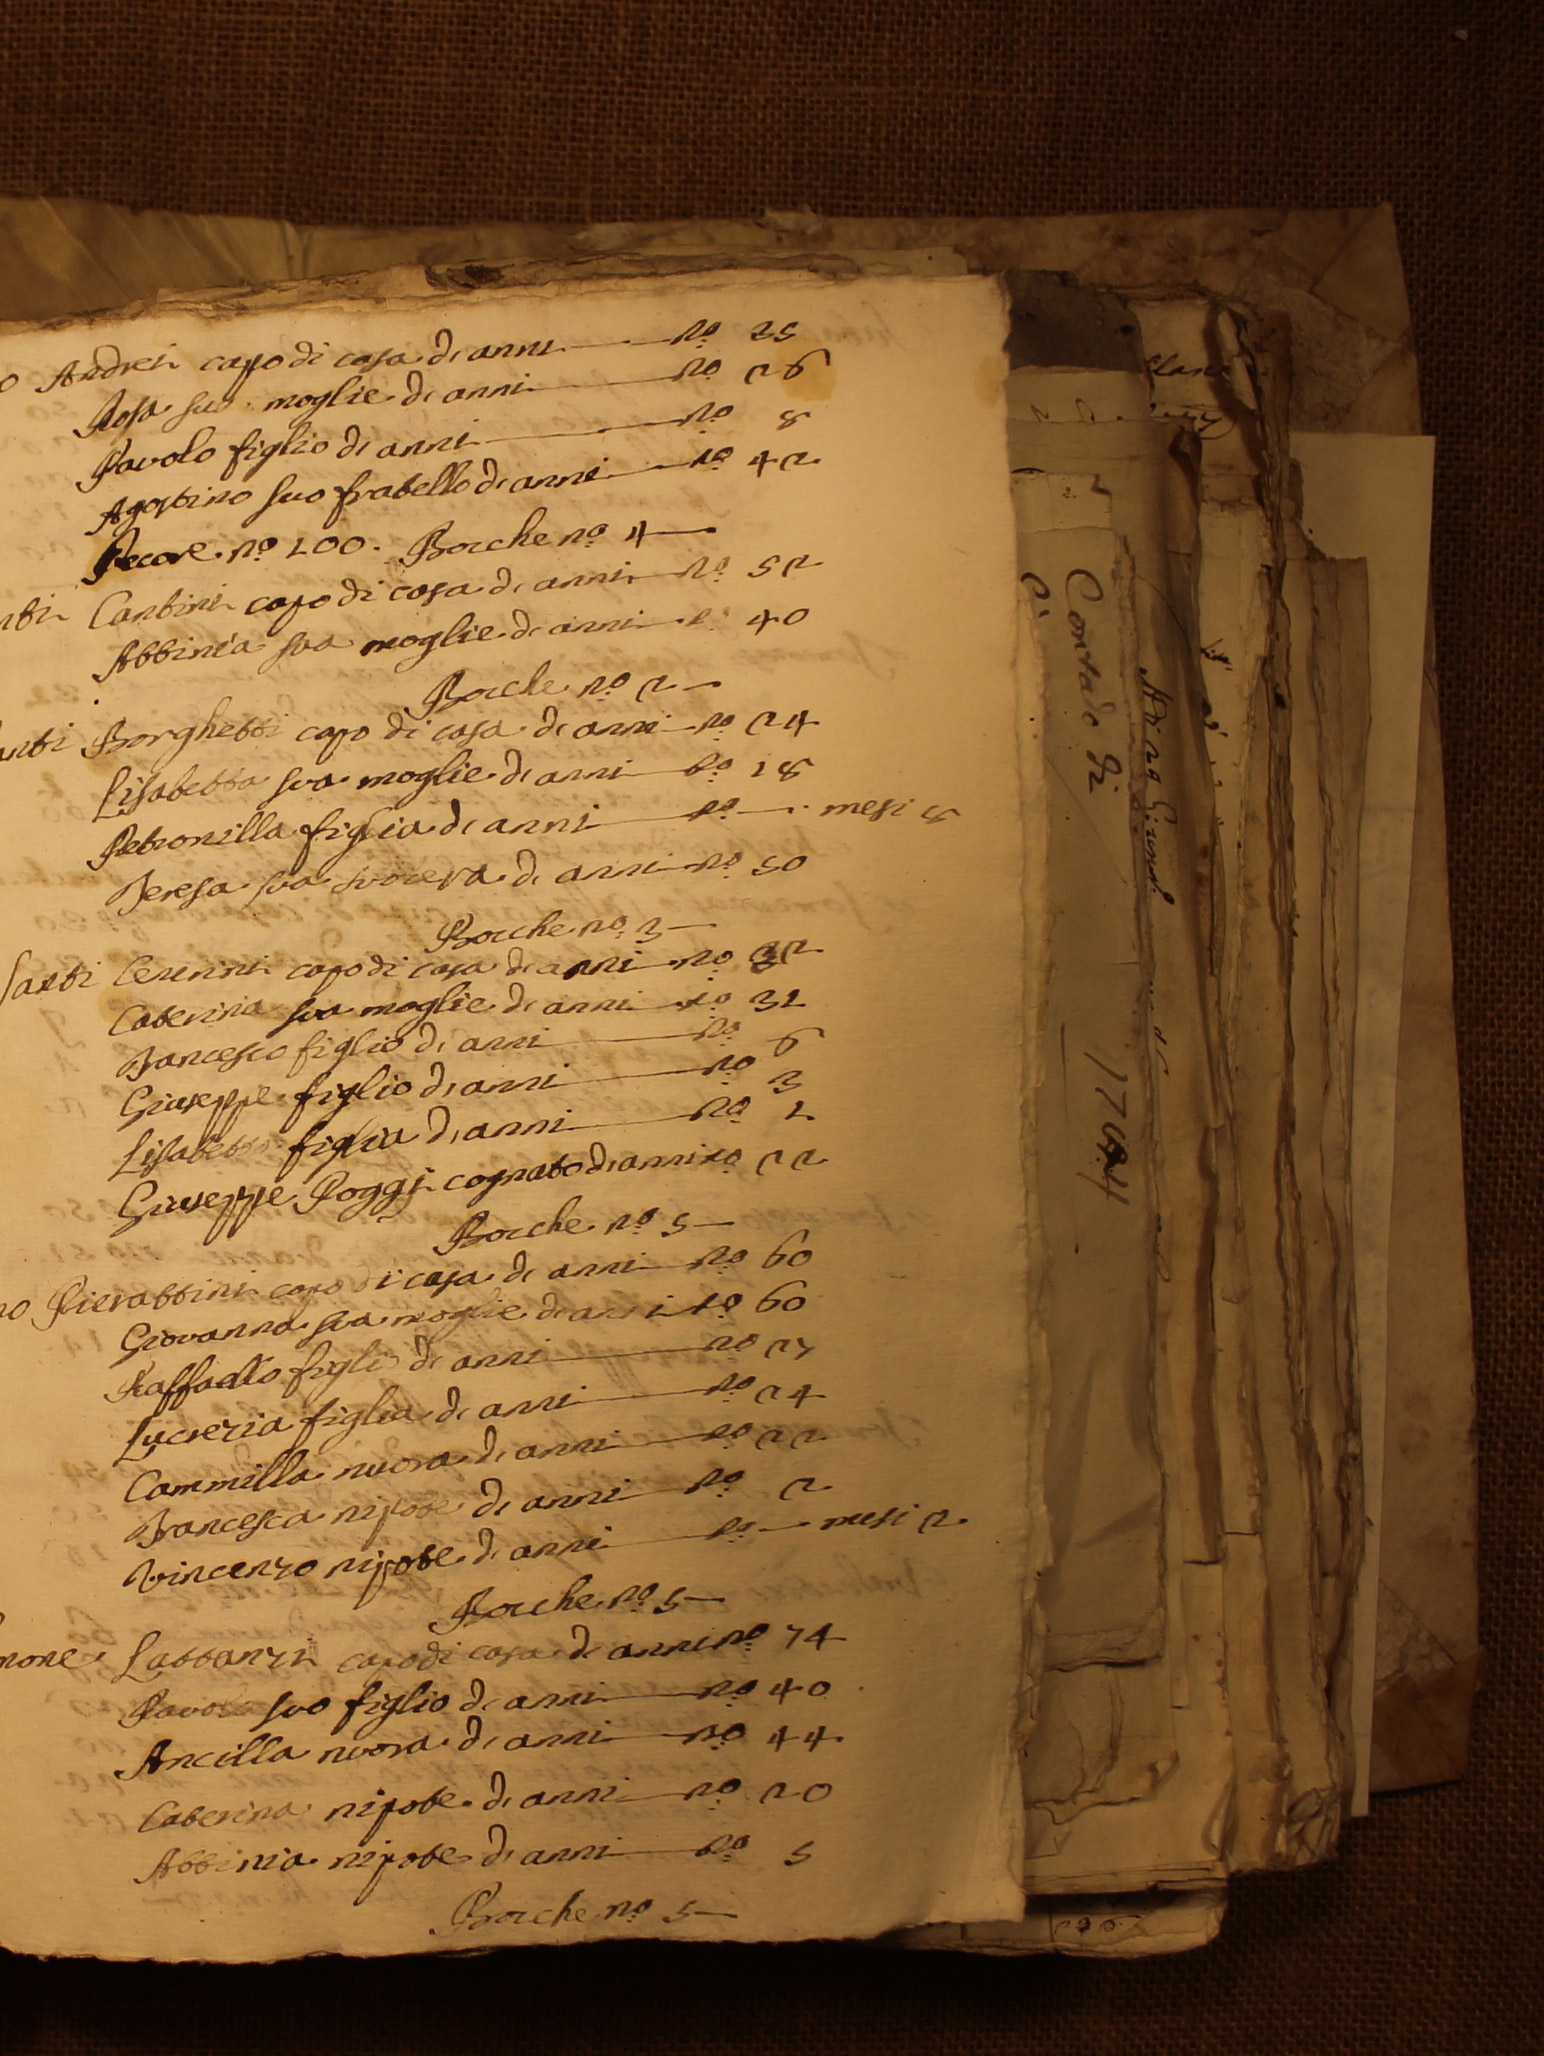 o Andrei capo di casa di anni no 35
Rosa sua moglie di anni no 26
Pavolo figlio di anni no 8
Agostino suo fratello di anni no 42
Pecore no 100. Bocche no 4
nti Cantini capo di casa di anni no 52
Abbinia sua moglie di anni no 40
Bocche no 2
anti Borghetti capo di casa di anni no 24
Lisabetta sua moglie di anni no 18
Petronilla figlia di anni no mesi 8
Teresa sua suocera di anni no 50
Bocche no 3
Santi Cerinni capo di casa di anni no 32
Caterina sua moglie di anni no 31
Francesco figlio di anni no 6
Giuseppe figlio di anni no 3
Lisabetta figlia di anni no 1
Giuseppe Poggi cognato di anni no 22
Bocche no 5
no Pierattini capo di casa di anni no 60
Giovanna sua moglie di anni no 60
Raffaello figlio di anni no 27
Lucrezia figlia di anni no 24
Cammilla nuora di anni no 22
Francesca nipote di anni no 2
Vincenzo nipote di anni no mesi 2
Bocche no 5
mone Lattanzi capo di casa di anni no 74
Pavolo suo figlio di anni no 40
Ancilla nuora di anni no 44
Caterina nipote di anni no 20
Abbinia nipote di anni no 5
Bocche no 5
Contado di